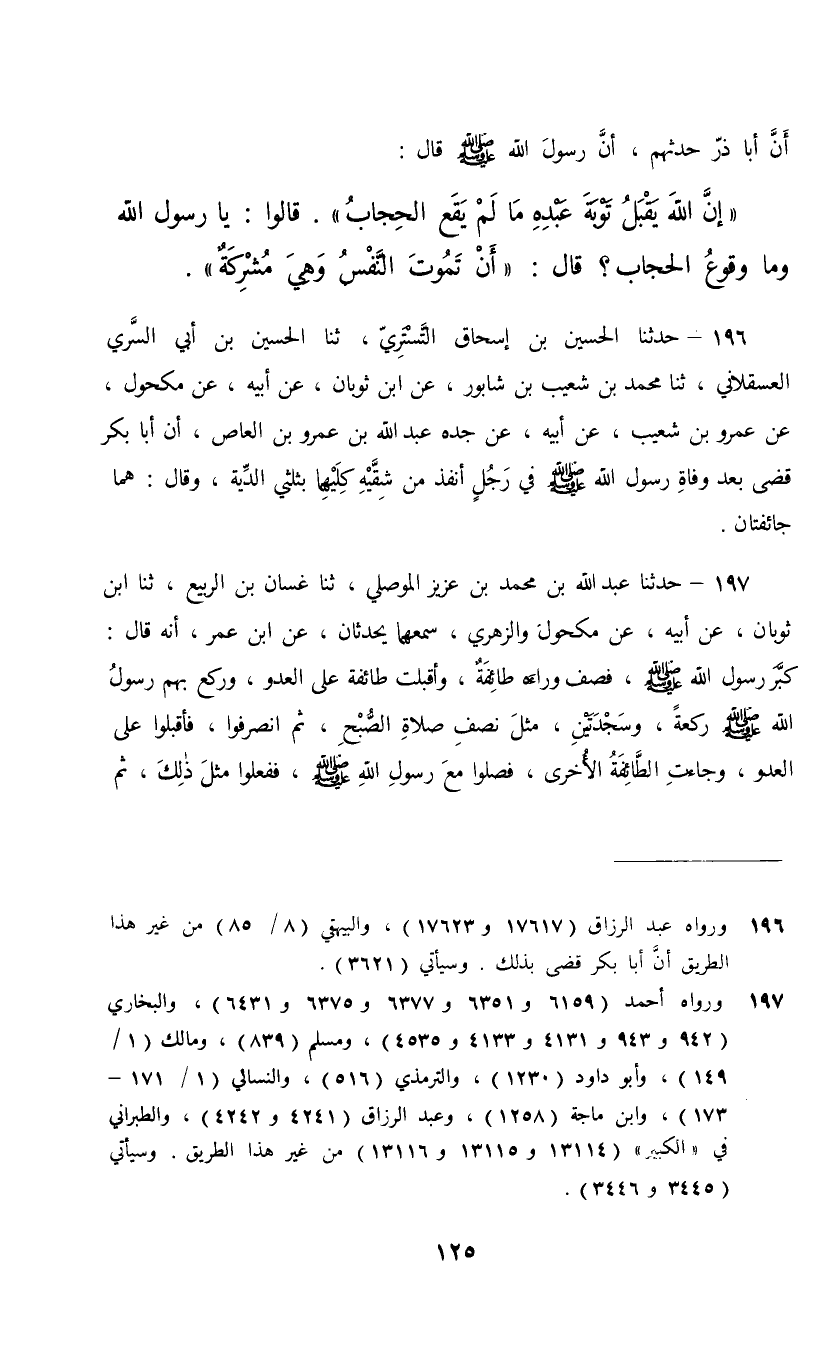 أَنَّ أبا ذرّ حدثهم ، أنَّ رسولَ الله ﷺ قال :
« إنَّ اللهَ يَقْبَلُ تَوْبَةَ عَبْدِهِ مَا لَمْ يَقَعِ الحِجابُ » . قالوا : يا رسول الله
وما وقوعُ الحجاب ؟ قال : « أَنْ تَمُوتَ النَّفْسُ وَهِيَ مُشْرِكَةٌ » .
١٩٦ – حدثنا الحسين بن إسحاق التَّسْتَرِيّ ، ثنا الحسين بن أبي السَّري
العسقلاني ، ثنا محمد بن شعيب بن شابور ، عن ابن ثوبان ، عن أبيه ، عن مكحول ،
عن عمرو بن شعيب ، عن أبيه ، عن جده عبد الله بن عمرو بن العاص ، أن أبا بكر
قضى بعد وفاةِ رسول الله ﷺ في رَجُلٍ أنفذ من شِقَّيْهِ كِلَيْهِا بثلثي الدِّية ، وقال : هما
جائفتان .
١٩٧ – حدثنا عبد الله بن محمد بن عزيز الموصلي ، ثنا غسان بن الربيع ، ثنا ابن
ثوبان ، عن أبيه ، عن مكحول والزهري ، سمعهما يحدثان ، عن ابن عمر ، أنه قال :
كبَّرَ رسول الله ﷺ ، فصف وراءه طائِفَةٌ ، وأقبلت طائفة على العدو ، وركع بهم رسولُ
الله ﷺ ركعةً ، وسَجْدَتَيْنِ ، مثلَ نصفِ صلاةِ الصُّبْحِ ، ثم انصرفوا ، فأقبلوا على
العدو ، وجاءتِ الطَّائِفَةُ الأُخرى ، فصلوا معَ رسولِ اللهِ ﷺ ، ففعلوا مثلَ ذٰلِكَ ، ثم
١٩٦ ورواه عبد الرزاق ( ١٧٦١٧ و ١٧٦٢٣ ) ، والبيهقي ( ٨ / ٨٥ ) من غير هذا
الطريق أنَّ أبا بكر قضى بذلك . وسيأتي ( ٣٦٢١ ) .
١٩٧ ورواه أحمد ( ٦١٥٩ و ٦٣٥١ و ٦٣٧٧ و ٦٣٧٥ و ٦٤٣١ ) ، والبخاري
( ٩٤٢ و ٩٤٣ و ٤١٣١ و ٤١٣٣ و ٤٥٣٥ ) ، ومسلم ( ٨٣٩ ) ، ومالك ( ١ /
١٤٩ ) ، وأبو داود ( ١٢٣٠ ) ، والترمذي ( ٥١٦ ) ، والنسائي ( ١ / ١٧١ –
١٧٣ ) ، وابن ماجة ( ١٢٥٨ ) ، وعبد الرزاق ( ٤٢٤١ و ٤٢٤٢ ) ، والطبراني
في « الكبير » ( ١٣١١٤ و ١٣١١٥ و ١٣١١٦ ) من غير هذا الطريق . وسيأتي
( ٣٤٤٥ و ٣٤٤٦ ) .
١٢٥